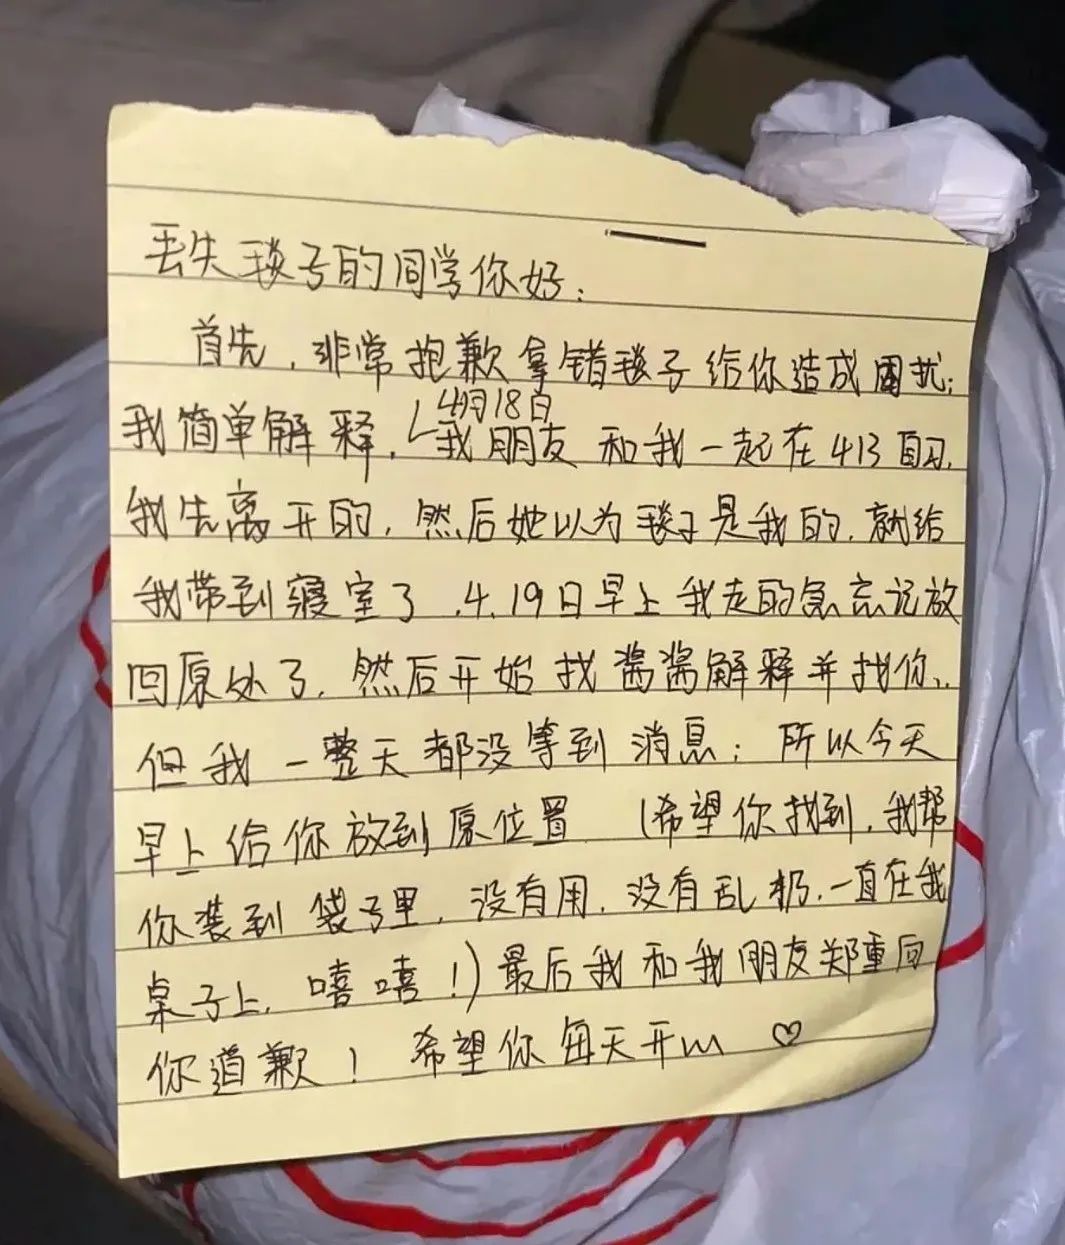 丢失毯子的同学你好：
首先，非常抱歉拿错毯子给你造成困扰；
4月18日
我简单解释，我朋友和我一起在413自习，
我先离开的，然后她以为毯子是我的，就给
我带到寝室了，4.19日早上我走的急忘记放
回原处了，然后开始找酱酱解释并找你，
但我一整天都没等到消息；所以今天
早上给你放到原位置（希望你找到，我帮
你装到袋子里，没有用，没有乱扔，一直在我
桌子上，嘻嘻！）最后我和我朋友郑重向
你道歉！希望你每天开心♡